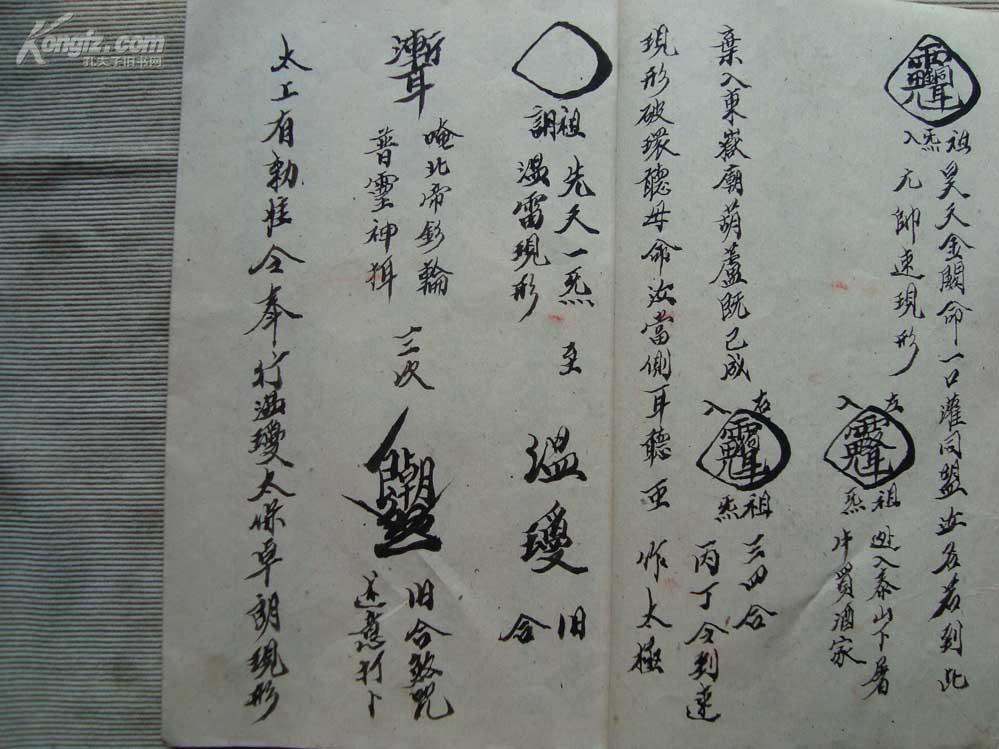 祖炁入
昊天金闕命一口灌同盟汝名若到此
元帥速現形
左入
祖炁
逊入泰山下署
牛買酒家
棄入東嶽廟葫蘆既已成
右入
祖炁
三四合
丙丁令到速
現形破環聽母命汝當側耳聽至 作太極
祖 先天一炁 至 溫瓊 旧合
調溫雷現形
唵北帝鈐輪
普靈神
三次
旧合发咒
送意打卜
太上有勅性令奉行溫瓊太保卓朗現形
Kongfz.com
孔夫子旧书网